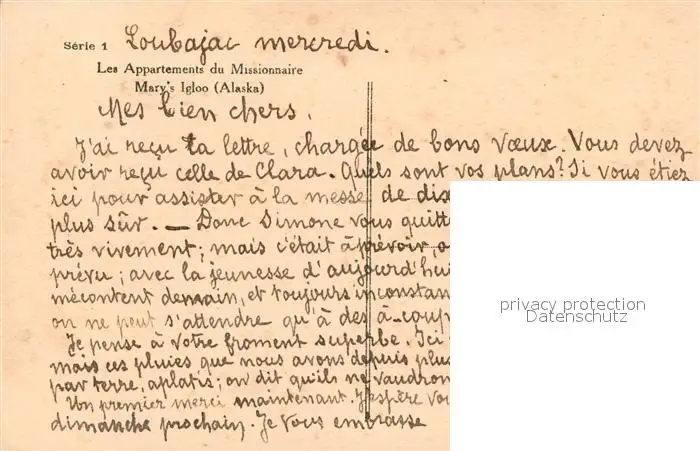 Série 1 Loubajac mercredi.
Les Appartements du Missionnaire
Mary's Igloo (Alaska)
Mes bien chers,
J'ai reçu ta lettre, chargée de bons vœux. Vous devez
avoir reçu celle de Clara. Quels sont vos plans? Si vous étiez
ici pour assister à la messe de dix
plus sûr. — Donc Simone vous quitt
très vivement; mais c'était à prévoir, o
prévu; avec la jeunesse d'aujourd'hui
mécontent demain, et toujours inconstan
on ne peut s'attendre qu'à des à-coup
Je pense à votre froment superbe. Ici
mais ces pluies que nous avons depuis plus
par terre, aplatis; on dit qu'ils ne vaudron
Un premier merci maintenant. J'espère vou
dimanche prochain. Je vous embrasse
privacy protection
Datenschutz